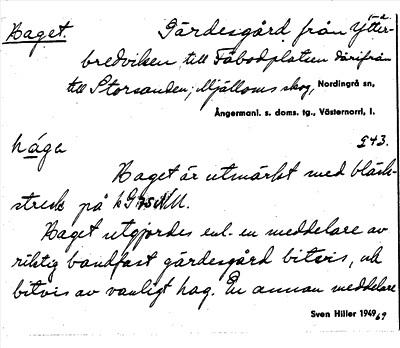 Haget. Gärdesgård från Ytter-
bredviken, till Fäbodplatsen därifrån
till Storsanden; Mjälloms skog, Nordingrå sn,
Ångermanl. s. doms. tg., Västernorrl, l.
hága 543.
Haget är utmärkt med bläck-
streck på
Haget utgjordes enl. en meddelare av
riktig bandfast gärdesgård bitvis, och
bitvis av vanligt hag. En annan meddelare
Sven Hiller 1949